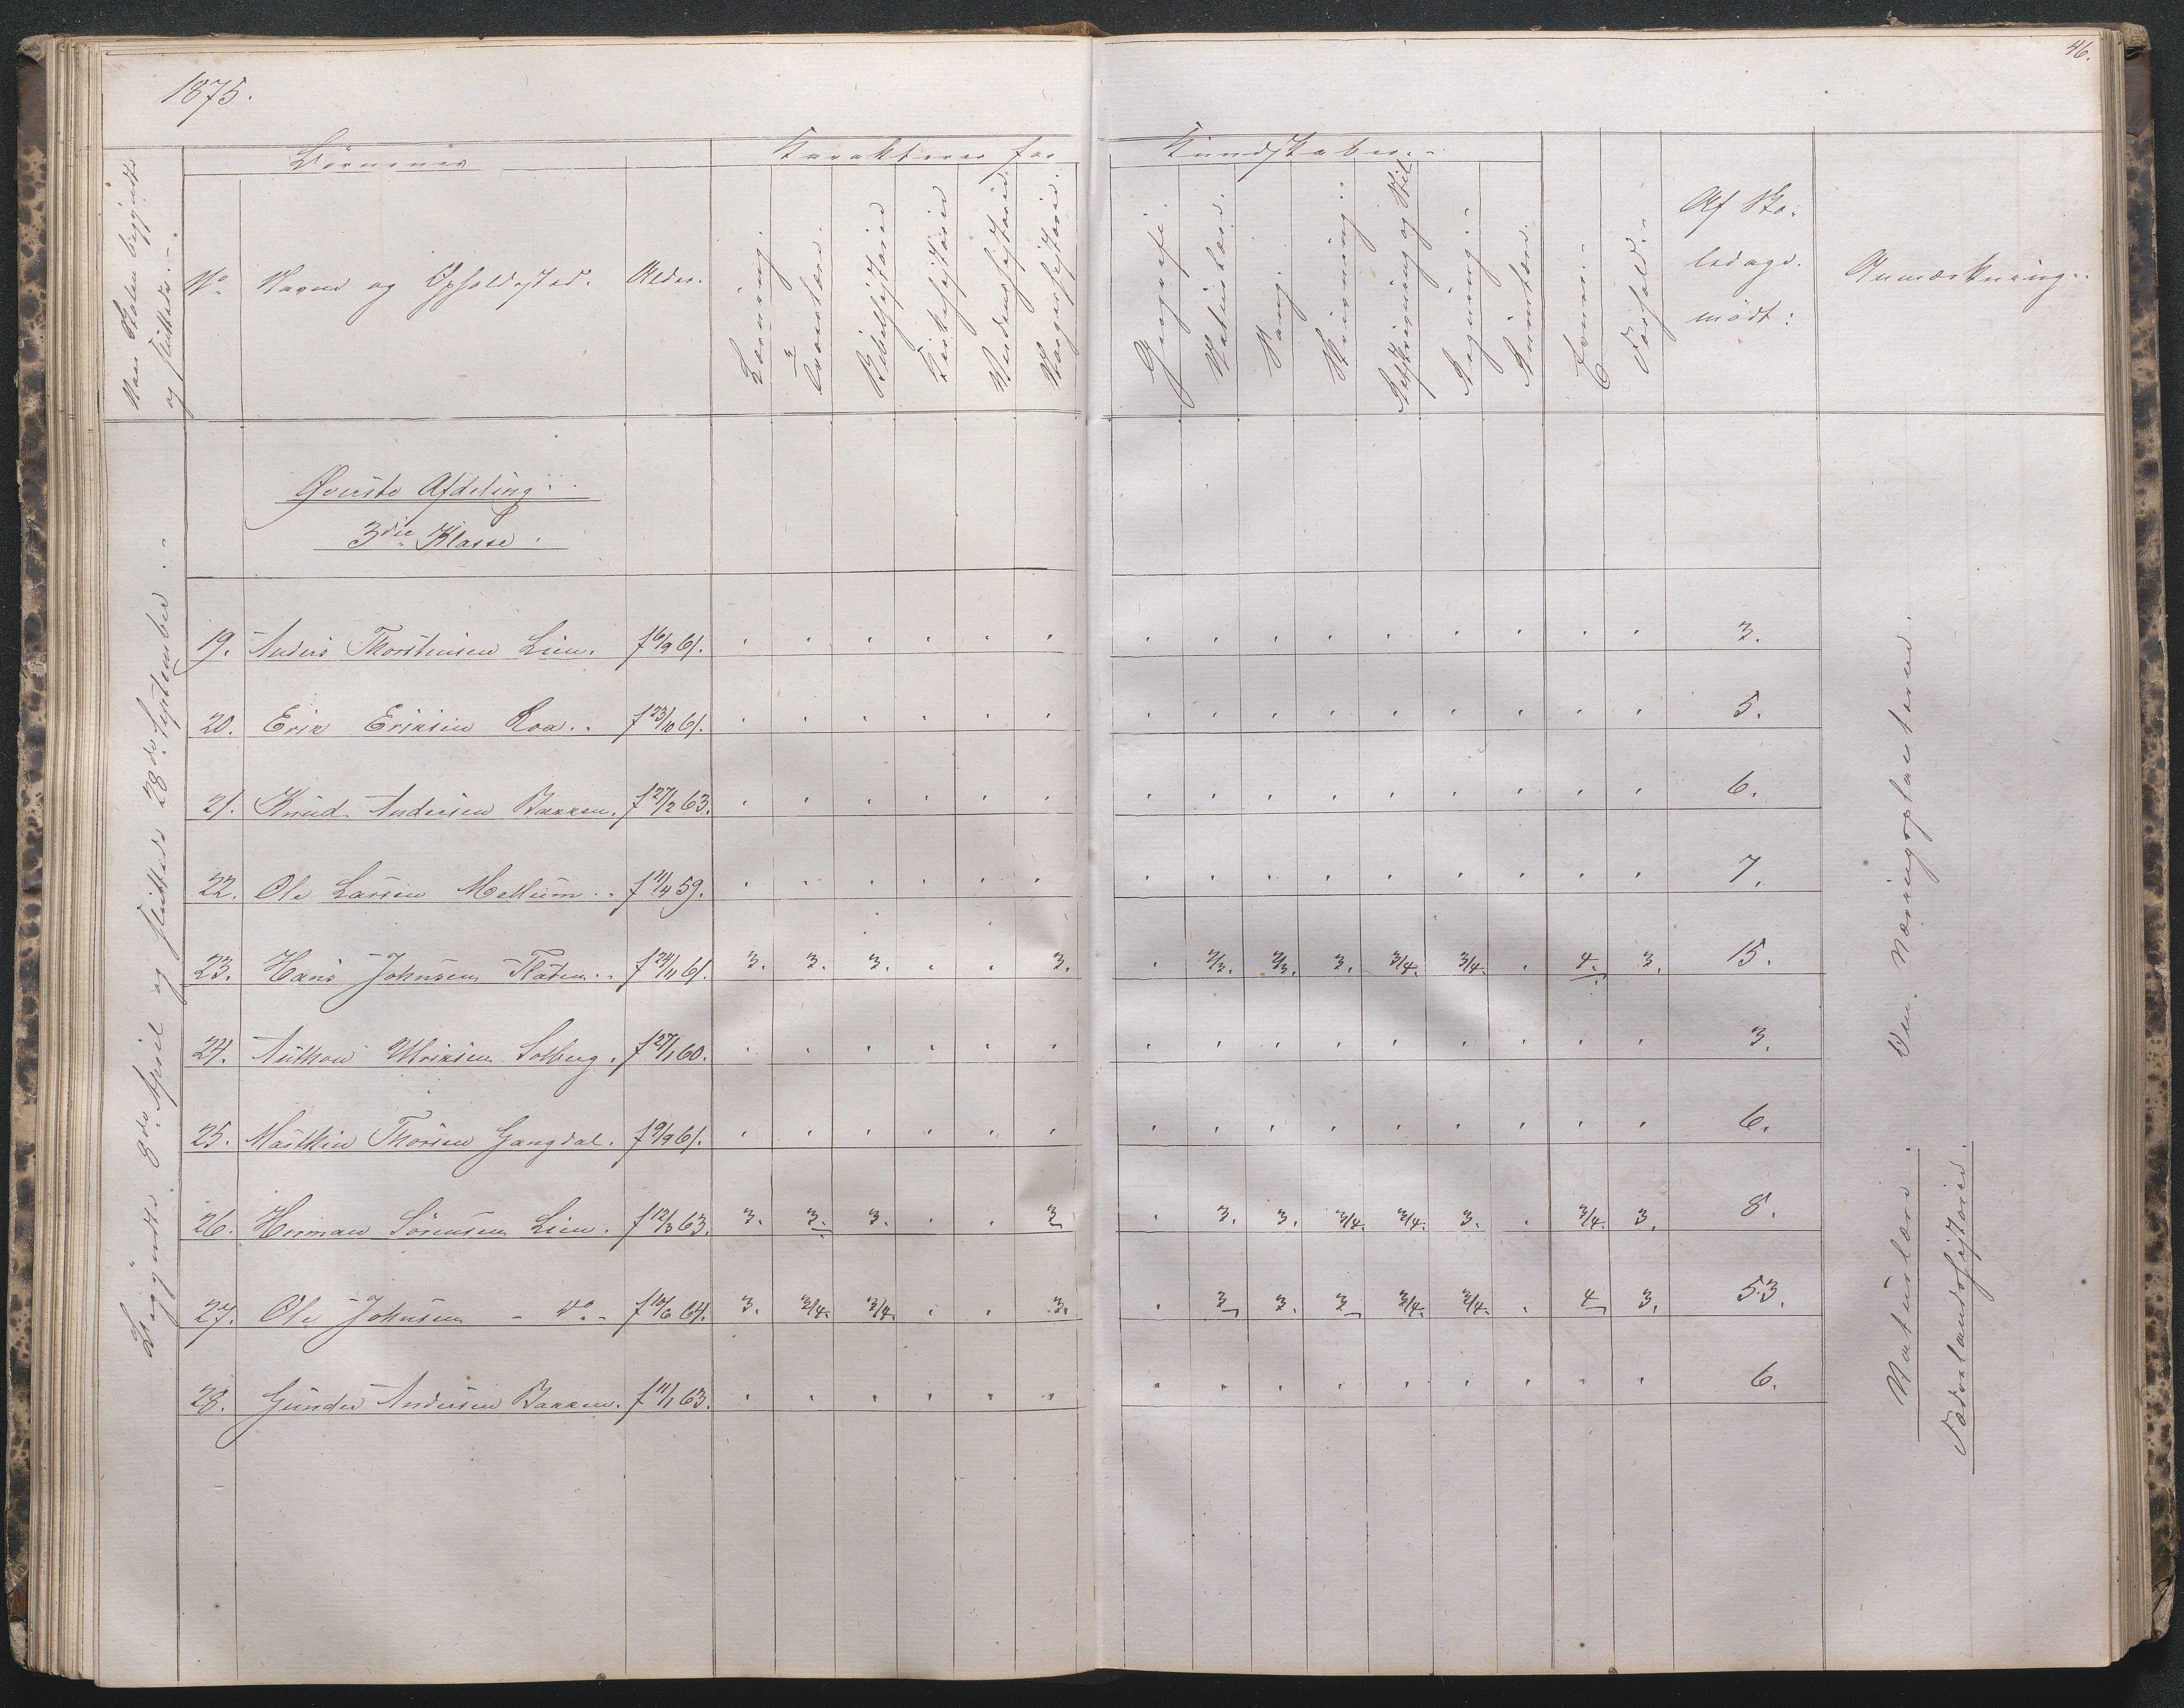 46.
1875.
Naar Skolen begyndte
og sluttede.
Børnenes
Karakterer for Kundskaber.
No. Navne og Opholdssted. Alder. Læsning. Troeslære. Bibelhistorie Kirkehistorie Verdenshistorie. Norgeshistorie. Geografi. Naturlære. Sang. Skrivning. Retskrivning og Stil Regning. Evner. Forhold. Af Sko-
ledage.
mødt: Anmærkning.
Øverste Afdeling.
3die Klasse.
Begyndte 8de April og sluttede 28de September.
19. Anders Thorstensen Lien. f 16/9 61. 3.
20. Erik Eriksen Roa. f 23/10 61. 5.
21. Knud Andersen Bakken. f 27/2 63. 6.
22. Ole Larsen Mellum. f 11/4 59. 7.
23. Hans Johnsen Flåten. f 24/11 61. 3. 3. 3. 3. 2/3. 2/3. 3. 3/4. 3/4. 4. 3. 15.
24. Anthon Ulriksen Solberg. f 27/1 60. 3.
25. Mathias Thorsen Gangdal. f 9/9 61. 6.
26. Herman Sörensen Lien. f 12/3 63. 3. 3. 3. 3 3. 3. 3/4. 3/4. 3. 3/4. 3. 8.
27. Ole Johnsen - do. - f 10/6 64. 3. 3/4. 3/4. 3. 3 3. 3 3/4. 3/4. 4 3. 53.
28. Gunder Andersen Bakken. f 11/1 63. 6.
Naturlære. Om Næringsplanterne.
Fædrelandshistorie.